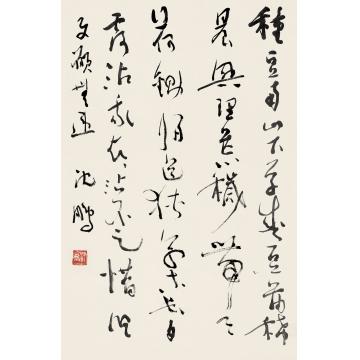 種豆南山下草盛豆苗稀
晨興理荒穢帶月
荷鋤歸道狹草木長夕
露沾我衣々沾不足惜但
使願無違 沈鵬